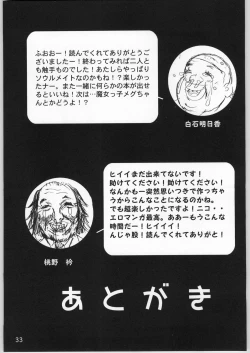 ふおおー！読んでくれてありがとうござ
いましたー！終わってみれば二人と
も触手ものでした！あたしらやっぱり
ソウルメイトなのかもね！？楽しかっ
たナー。また一緒に何らかの本が出
せるといいね！次は…魔女っ子メグちゃ
んとかどうよ！？
白石明日香
ヒイイまだ出来てないです！
助けてください！助けてください！
なんだもー突然思いつきで作っちゃう
からこんなことになるのかね。
でも超楽しかったです！ニコ・・
エロマンガ最高。ああーもうこんな
時間だー！ヒイイイ！
んじゃ股！読んでくれてありがと！
桃野 衿
あとがき
33